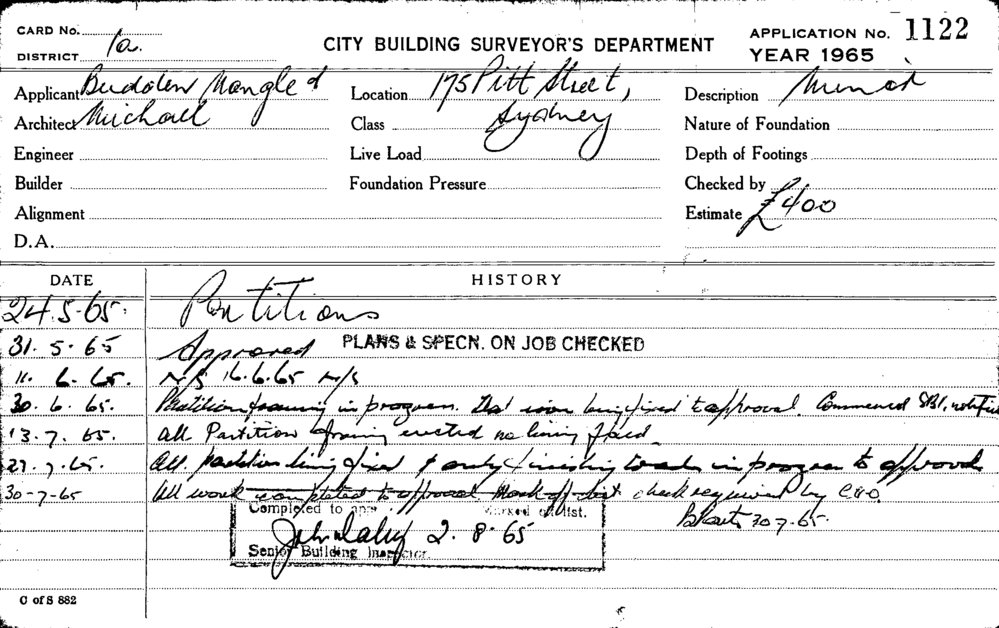 CARD No. 1a.
DISTRICT
CITY BUILDING SURVEYOR'S DEPARTMENT
APPLICATION No. 1122
YEAR 1965
Applicant Mangle &
Location 175 Pitt Street,
Description
Architect Michall
Class Sydney
Nature of Foundation
Engineer
Live Load
Depth of Footings
Builder
Foundation Pressure
Checked by
Alignment
Estimate £400
D.A.
DATE HISTORY
24.5-65. Partitions
31. 5. 65 Approved PLANS & SPECN. ON JOB CHECKED
11. 6. 65. N/S 16.6.65 N/S
30. 6. 65. Partition framing in progress. being fixed to approval. Commenced
13. 7. 65. All Partition framing erected no lining fixed.
27. 7. 65. All partition lining fixed & only finishing in progress to approval
30-7-65 All work completed to approval Mark off list check required by
30.7.65.
Completed to marked off list.
John Daley 2. 8. 65
Senior Building Inspector.
C of S 882